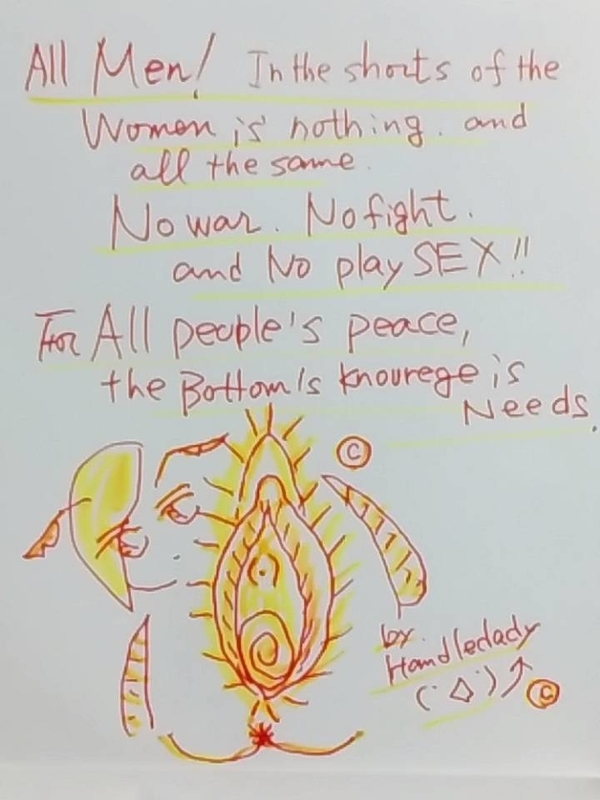 All Men! In the shorts of the
Women is nothing. and
all the same.
No war. No fight.
and No play SEX!!
For All people's peace,
the Bottom's knourege is
Needs.
©
by.
Handledady
©